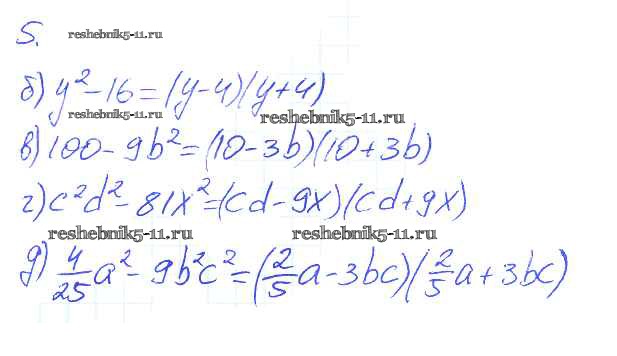 5. reshebnik5-11.ru
б) y² - 16 = (y - 4)(y + 4)
reshebnik5-11.ru reshebnik5-11.ru
в) 100 - 9b² = (10 - 3b)(10 + 3b)
г) c²d² - 81x² = (cd - 9x)(cd + 9x)
reshebnik5-11.ru reshebnik5-11.ru
д) 4/25 a² - 9b²c² = (2/5 a - 3bc)(2/5 a + 3bc)